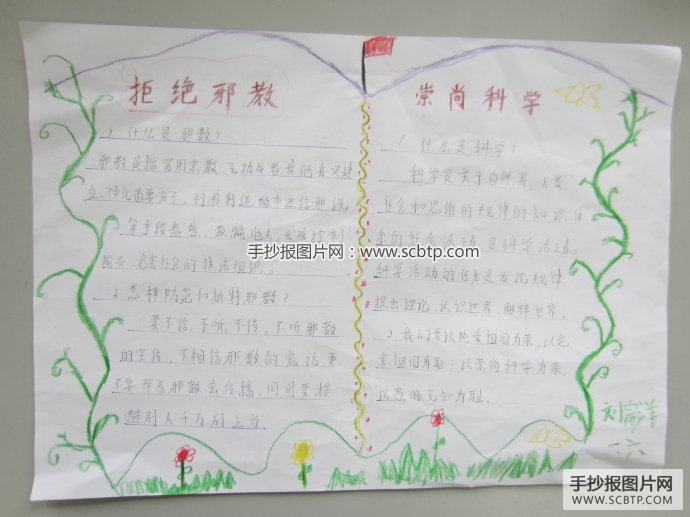 拒绝邪教
1. 什么是邪教?
邪教是指冒用宗教、气功或者其他名义建
立、神化首要分子,利用制造、散布迷信邪说
等手段蛊惑、蒙骗他人,发展控制
成员、危害社会的非法组织。
2. 怎样防范和抵制邪教?
要不信、不听、不传。不听邪教
的宣传,不相信邪教的鬼话,更
不要帮着邪教去传播,同时要提
醒别人千万别上当.
崇尚科学
1. 什么是科学?
科学是关于自然界、人类
社会和思维的规律的知识体
系的社会活动是科学活动。
科学活动的任务是发现规律,
提出理论,认识世界、解释世界。
2. 我们要以热爱祖国为荣,以危
害祖国为耻;以崇尚科学为荣,
以愚昧无知为耻.
手抄报图片网:www.scbtp.com
手抄报图片网
WWW.SCBTP.COM